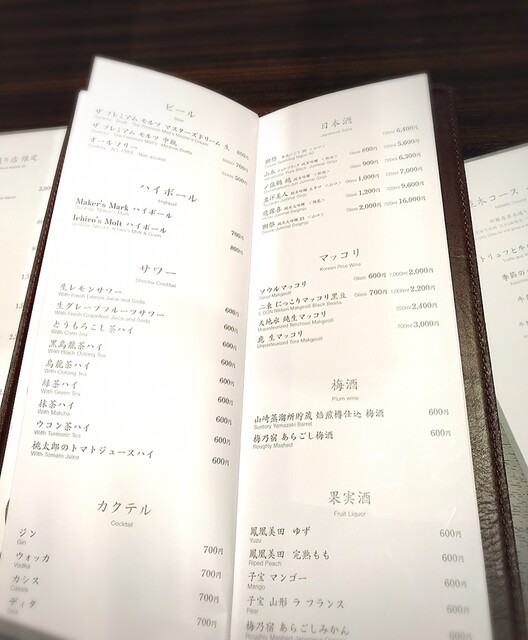 ビール
Beer
ザ プレミアム モルツ マスターズドリーム 生 800円
ザ プレミアム モルツ 中瓶 700円
オールフリー 500円
ALL FREE Non alcohol
ハイボール
Highball
Maker's Mark ハイボール 700円
Ichiro's Molt ハイボール 800円
サワー
Shochu Cocktail
生レモンサワー
With Fresh Lemon Juice and Soda
生グレープフルーツサワー 600円
With Fresh Grapefruit Juice and Soda
とうもろこし茶ハイ 600円
With Corn Tea
黒烏龍茶ハイ 600円
With Black Oolong Tea
烏龍茶ハイ 600円
With Oolong Tea
緑茶ハイ 600円
With Green Tea
抹茶ハイ 600円
With Matcha
ウコン茶ハイ 600円
With Turmeric Tea
桃太郎のトマトジュースハイ 600円
With Tomato Juice 600円
カクテル
Cocktail
ジン 700円
Gin
ウォッカ 700円
Vodka
カシス 700円
Cassis
ディタ 700円
日本酒
Japanese Sake
獺祭 720ml 6,400円
山本 Glass 800円 720ml 5,600円
〆張鶴 純 Glass 900円 720ml 6,300円
東洋美人 Glass 1,000円 720ml 7,000円
飛露喜 Glass 1,200円 720ml 9,600円
獺祭 Glass 2,000円 720ml 16,000円
マッコリ
Korean Rice Wine
ソウルマッコリ Glass 600円 1,000ml 2,000円
Seoul Makgeolli
二東 にっこりマッコリ黒豆 Glass 700円 1,000ml 2,200円
E-DON Nikkori Makgeolli Black Beans
天地水 純生マッコリ 700ml 2,400円
Unpasteurized Tenchisui Makgeolli
虎 生マッコリ 700ml 3,000円
Unpasteurized Tora Makgeolli
梅酒
Plum wine
山崎蒸溜所貯蔵 焙煎樽仕込 梅酒 600円
Suntory Yamazaki Barrel
梅乃宿 あらごし梅酒 600円
Roughly Mashed
果実酒
Fruit Liquor
鳳凰美田 ゆず 600円
Yuzu
鳳凰美田 完熟もも 600円
Riped Peach
子宝 マンゴー 600円
Mango
子宝 山形 ラ フランス 600円
Pear
梅乃宿 あらごしみかん 600円